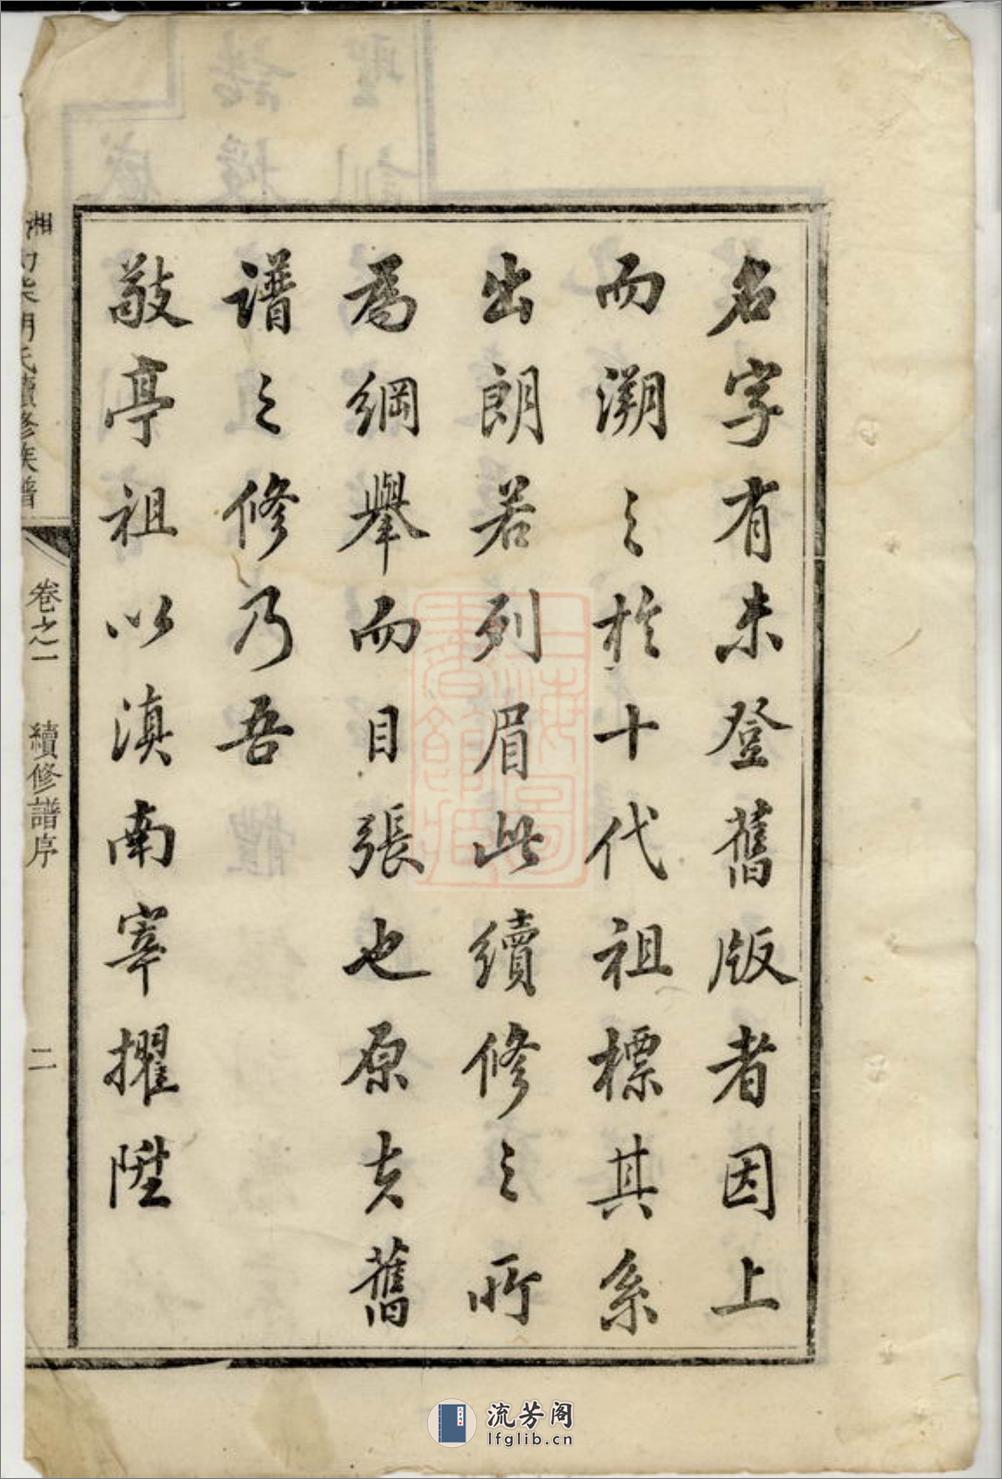 名字有未登舊版者因上
而溯之於十代祖標其系
出朗若列眉此續修之所
為綱舉而目張也原夫舊
譜之修乃吾
敬亭祖以滇南宰擢陞
氏續修族譜
卷之一
續修譜序
二
流芳阁
lfglib.cn